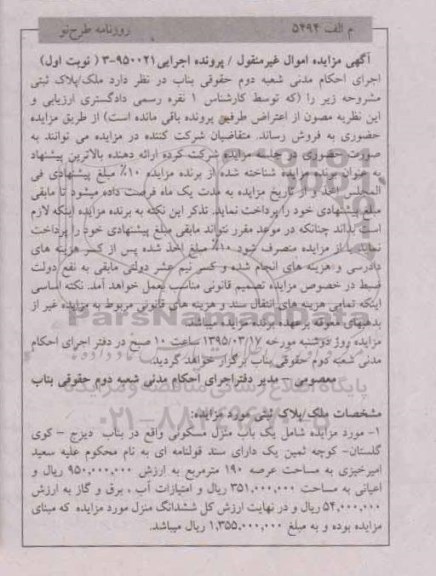 م الف ۵۴۹۴
روزنامه طرح‌نو
آگهی مزایده اموال غیرمنقول / پرونده اجرایی۹۵۰۰۲۱-۳ ( نوبت اول)
اجرای احکام مدنی شعبه دوم حقوقی بناب در نظر دارد ملک/پلاک ثبتی
مشروحه زیر را (که توسط کارشناس ۱ نفره رسمی دادگستری ارزیابی و
این نظریه مصون از اعتراض طرفین پرونده باقی مانده است) از طریق مزایده
حضوری به فروش رساند. متقاضیان شرکت کننده در مزایده می توانند به
صورت حضوری در جلسه مزایده شرکت کرده ارائه دهنده بالاترین پیشنهاد
به عنوان برنده مزایده شناخته شده از برنده مزایده ۱۰٪ مبلغ پیشنهادی فی
المجلس اخذ و از تاریخ مزایده به مدت یک ماه فرصت داده میشود تا مابقی
مبلغ پیشنهادی خود را پرداخت نماید. تذکر این نکته به برنده مزایده اینکه لازم
است بداند چنانکه در موعد مقرر نتواند مابقی مبلغ پیشنهادی خود را پرداخت
نماید یا از مزایده منصرف شود ۱۰٪ مبلغ اخذ شده پس از کسر هزینه های
دادرسی و هزینه های انجام شده و کسر نیم عشر دولتی مابقی به نفع دولت
ضبط در خصوص مزایده تصمیم قانونی مناسب بعمل خواهد آمد. نکته اساسی
اینکه تمامی هزینه های انتقال سند و هزینه های قانونی مربوط به مزایده غیر از
بدهیهای معوقه برعهده برنده مزایده میباشد.
مزایده روز دوشنبه مورخه ۱۳۹۵/۰۳/۱۷ ساعت ۱۰ صبح در دفتر اجرای احکام
مدنی شعبه دوم حقوقی بناب برگزار خواهد گردید.
معصومی – مدیر دفتراجرای احکام مدنی شعبه دوم حقوقی بناب
مشخصات ملک/پلاک ثبتی مورد مزایده:
۱- مورد مزایده شامل یک باب منزل مسکونی واقع در بناب دیزج – کوی
گلستان- کوچه ثمین یک دارای سند قولنامه ای به نام محکوم علیه سعید
امیرخیزی به مساحت عرصه ۱۹۰ مترمربع به ارزش ۹۵۰,۰۰۰,۰۰۰ ریال و
اعیانی به مساحت ۳۵۱,۰۰۰,۰۰۰ ریال و امتیازات آب ، برق و گاز به ارزش
۵۴,۰۰۰,۰۰۰ ریال و در نهایت ارزش کل ششدانگ منزل مورد مزایده که مبنای
مزایده بوده و به مبلغ ۱,۳۵۵,۰۰۰,۰۰۰ ریال میباشد.
ParsNamadData
پایگاه اطلاع رسانی مناقصه و مزایده